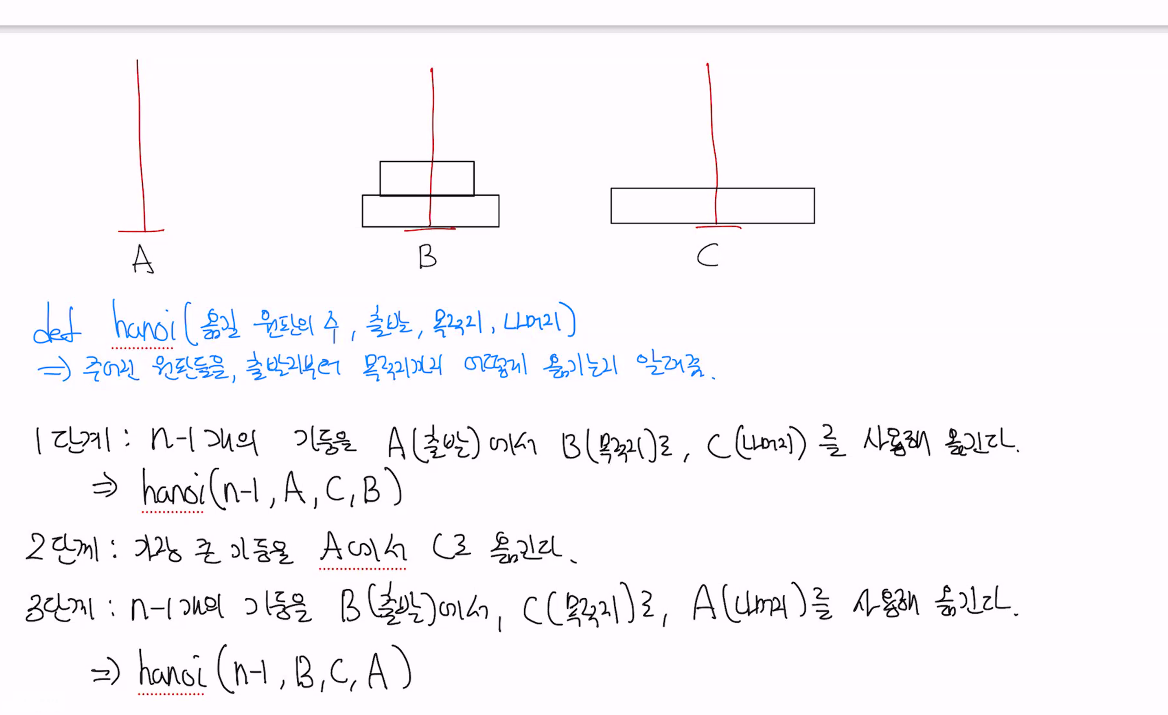 A B C
def hanoi(옮길 원판의 수, 출발, 목적지, 나머지)
⇒ 주어진 원판들을, 출발지부터 목적지까지 어떻게 옮기는지 알려줌.
1단계: n-1개의 기둥을 A(출발)에서 B(목적지)로, C(나머지)를 사용해 옮긴다.
⇒ hanoi(n-1, A, C, B)
2단계: 가장 큰 기둥을 A에서 C로 옮긴다.
3단계: n-1개의 기둥을 B(출발)에서, C(목적지)로, A(나머지)를 사용해 옮긴다.
⇒ hanoi(n-1, B, C, A)